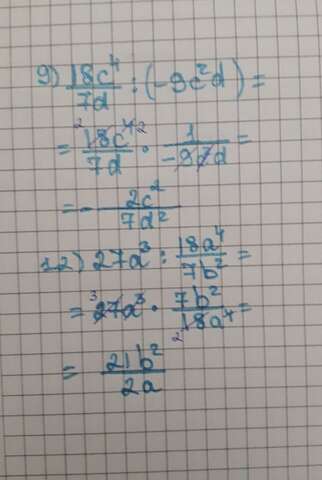 9) 18c⁴/7d : (-9c²d) =
= 18c⁴/7d · 1/-9c²d =
= - 2c²/7d²
12) 27a³ : 18a⁴/7b² =
= 27a³ · 7b²/18a⁴ =
= 21b²/2a